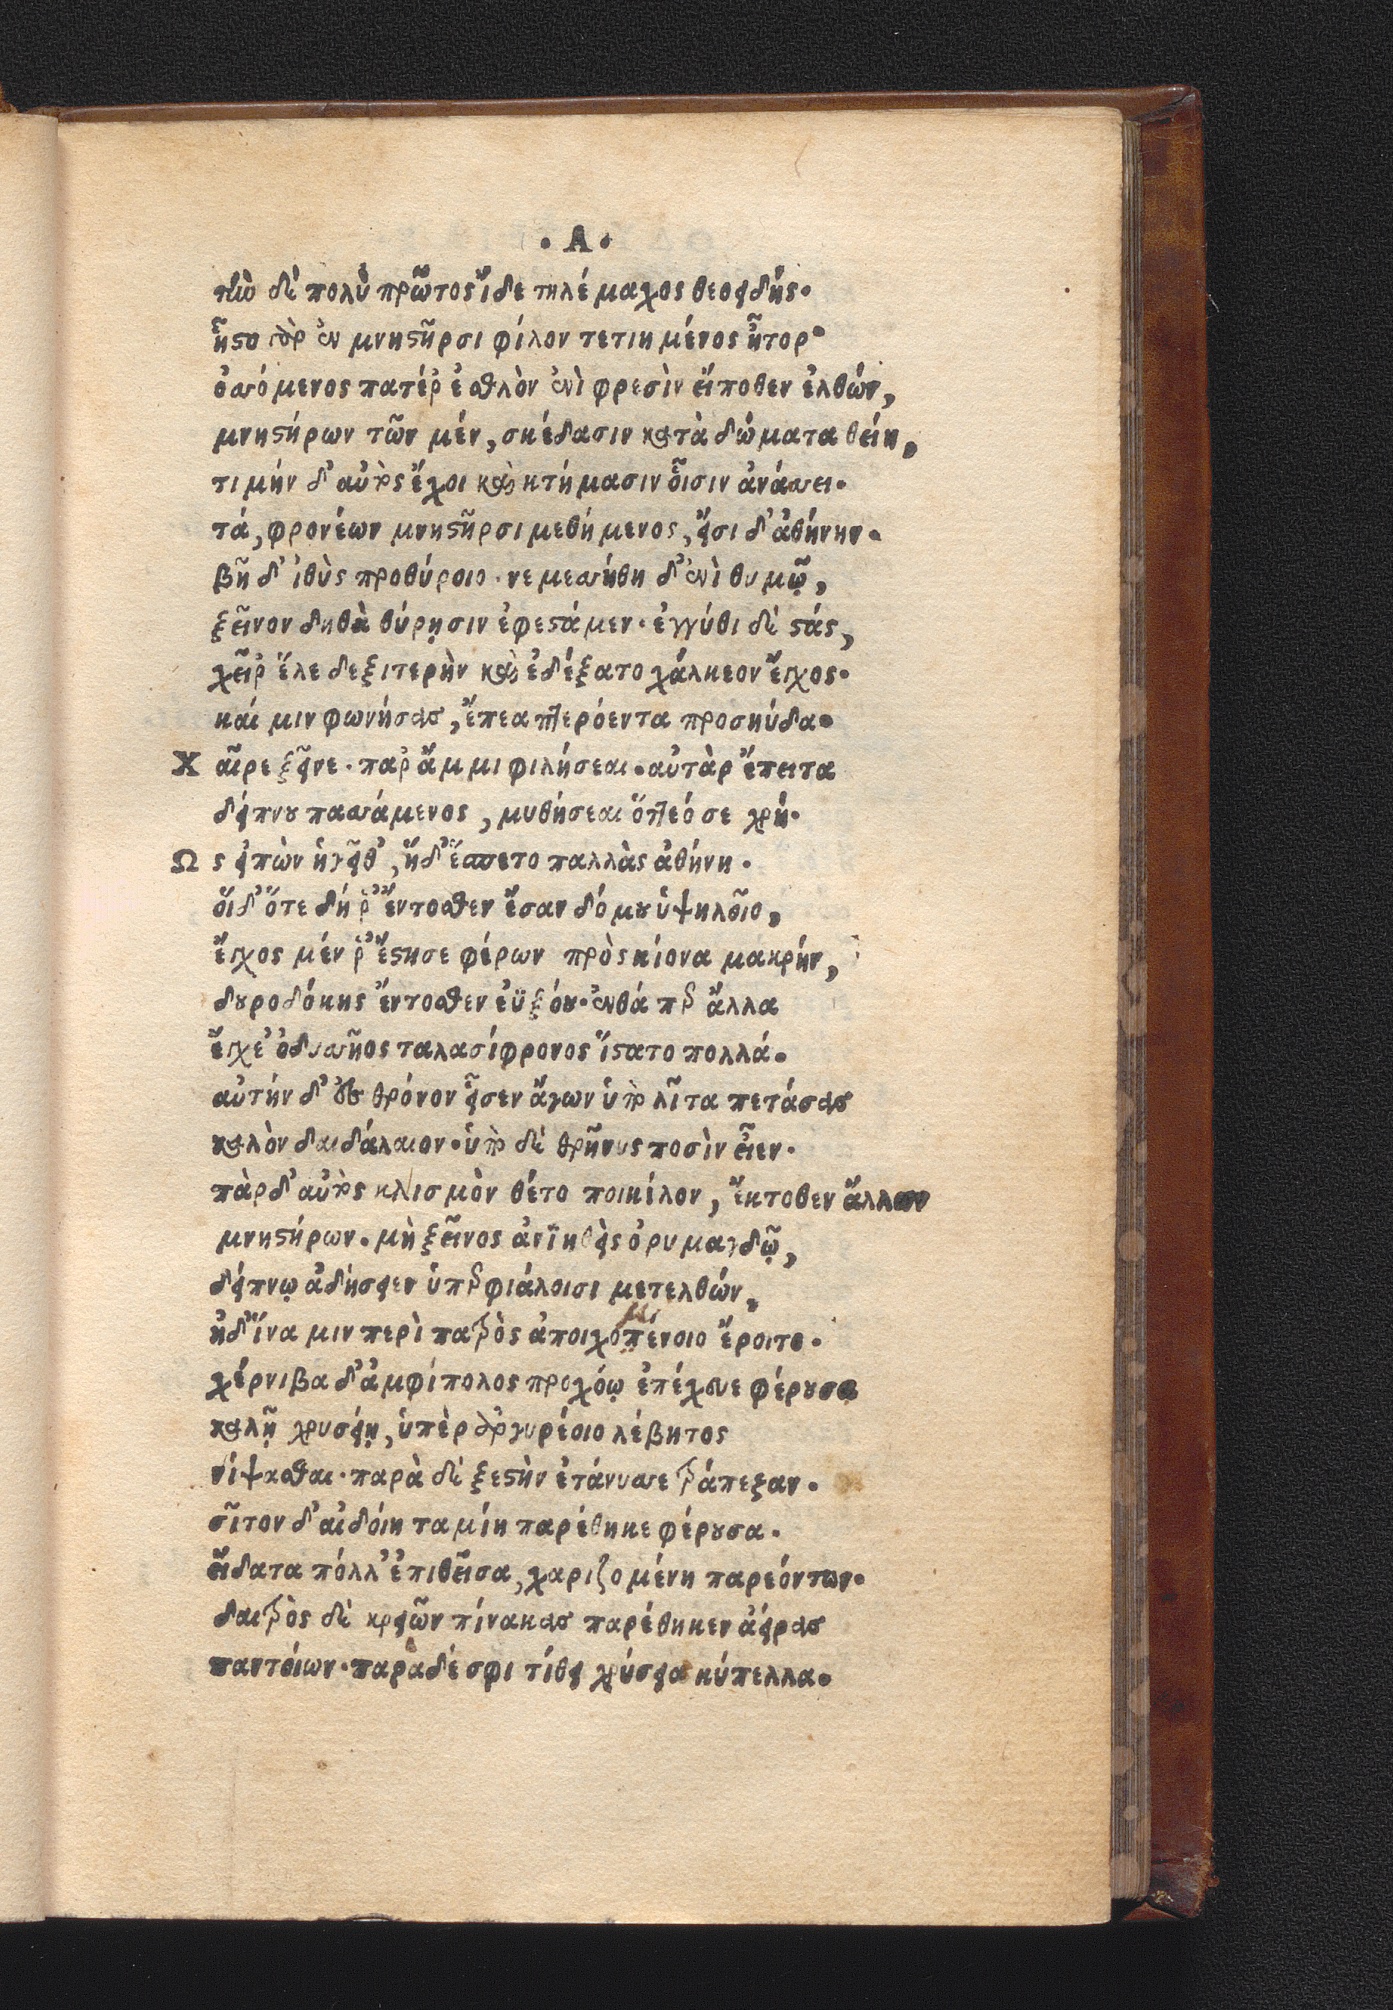 ·Α·
τὴν δὲ πολὺ πρῶτος ἴδε τηλέμαχος θεοειδής·
ἧστο γὰρ ἐν μνηστῆρσι φίλον τετιημένος ἦτορ·
ὀσσόμενος πατέρ ἐσθλὸν ἐνὶ φρεσὶν εἴποθεν ἐλθών,
μνηστήρων τῶν μέν, σκέδασιν κατὰ δώματα θείη,
τιμήν δ' αὐτὸς ἔχοι καὶ κτήμασιν οἷσιν ἀνάσσει·
τά, φρονέων μνηστῆρσι μεθήμενος, εἴσιδ' ἀθήνην·
βῆ δ' ἰθὺς προθύροιο· νεμεσσήθη δ' ἐνὶ θυμῷ,
ξεῖνον δηθὰ θύρῃσιν ἐφεστάμεν· ἐγγύθι δὲ στάς,
χεῖρ ἕλε δεξιτερὴν καὶ ἐδέξατο χάλκεον ἔγχος·
καί μιν φωνήσας, ἔπεα πτερόεντα προσηύδα·
Χ αῖρε ξεῖνε· παρ ἄμμι φιλήσεαι· αὐτὰρ ἔπειτα
δείπνου πασσάμενος, μυθήσεαι ὅττεό σε χρή·
Ω ς εἰπὼν ἡγεῖθ', ἥδ' ἕσπετο παλλὰς ἀθήνη·
οἵ δ' ὅτε δή ῥ' ἔντοσθεν ἔσαν δόμου ὑψηλοῖο,
ἔγχος μέν ῥ' ἔστησε φέρων πρὸς κίονα μακρήν,
δουροδόκης ἔντοσθεν ἐϋξόου· ἔνθά περ ἄλλα
ἔγχε' ὀδυσσῆος ταλασίφρονος ἵστατο πολλά·
αὐτήν δ' ἐς θρόνον εἷσεν ἄγων ὑπὸ λῖτα πετάσας
καλὸν δαιδάλαιον· ὑπὸ δὲ θρῆνυς ποσὶν ἦεν·
πὰρ δ' αὐτὸς κλισμὸν θέτο ποικίλον, ἔκτοθεν ἄλλων
μνηστήρων· μὴ ξεῖνος ἀνϊηθεὶς ὀρυμαγδῷ,
δείπνῳ ἀδήσειεν ὑπερφιάλοισι μετελθών,
ἠδ' ἵνα μιν περὶ πατρὸς ἀποιχοπένοιο ἔροιτο·
μι
χέρνιβα δ' ἀμφίπολος προχόῳ ἐπέχευε φέρουσα
καλῇ χρυσείῃ, ὑπὲρ ἀργυρέοιο λέβητος
νίψασθαι· παρὰ δὲ ξεστὴν ἐτάνυσσε τράπεζαν·
σῖτον δ' αἰδοίη ταμίη παρέθηκε φέρουσα·
εἴδατα πόλλ' ἐπιθεῖσα, χαριζομένη παρεόντων·
δαιτρὸς δὲ κρειῶν πίνακας παρέθηκεν ἀείρας
παντοίων· παρὰ δέ σφι τίθει χρύσεια κύπελλα·